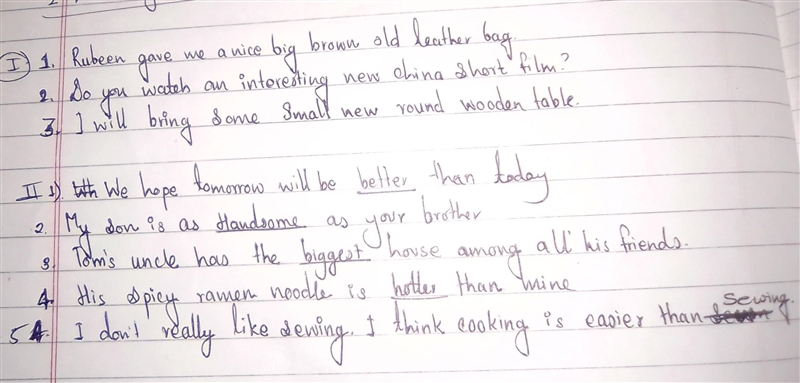 I 1. Rubeen gave me a nice big brown old leather bag.
2. Do you watch an interesting new china short film?
3. I will bring some small new round wooden table.
II 1). We hope tomorrow will be better than today
2. My son is as Handsome as your brother
3. Tom's uncle has the biggest house among all his friends.
4. His spicy ramen noodle is hotter than mine
5. I don't really like sewing. I think cooking is easier than sewing.